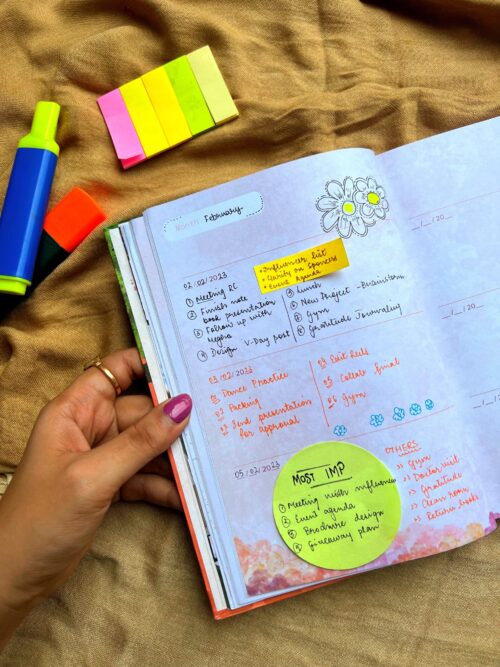 Month February
_/_/20_
02/02/2023
• Influencer list
• Clarity on Sponcers
• Event Agenda
① Meeting RC
② Finish note
book presentation
③ Follow up with
Megha
④ Design V-Day post
⑤ Lunch
⑥ New Project - Brainstorm
⑦ Gym
⑧ Gratitude Journaling
_/_/20_
03/02/2023
01 Dance Practice
02 Packing
03 Send presentation
for approval
04 Edit Reels
05 Collab final
06 Gym
_/_/20_
05/02/2023
MOST IMP
① Meeting with influencer
② Event agenda
③ Brochure design
④ Giveaway plan
OTHERS
>> Gym
>> Doctor visit
>> Gratitude
>> Clean room
>> Return books